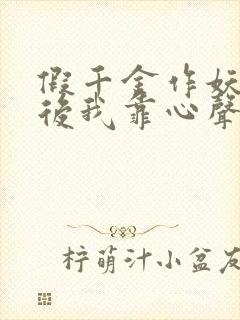 假千金作妖
後我靠心聲
梓萌汁小盆友